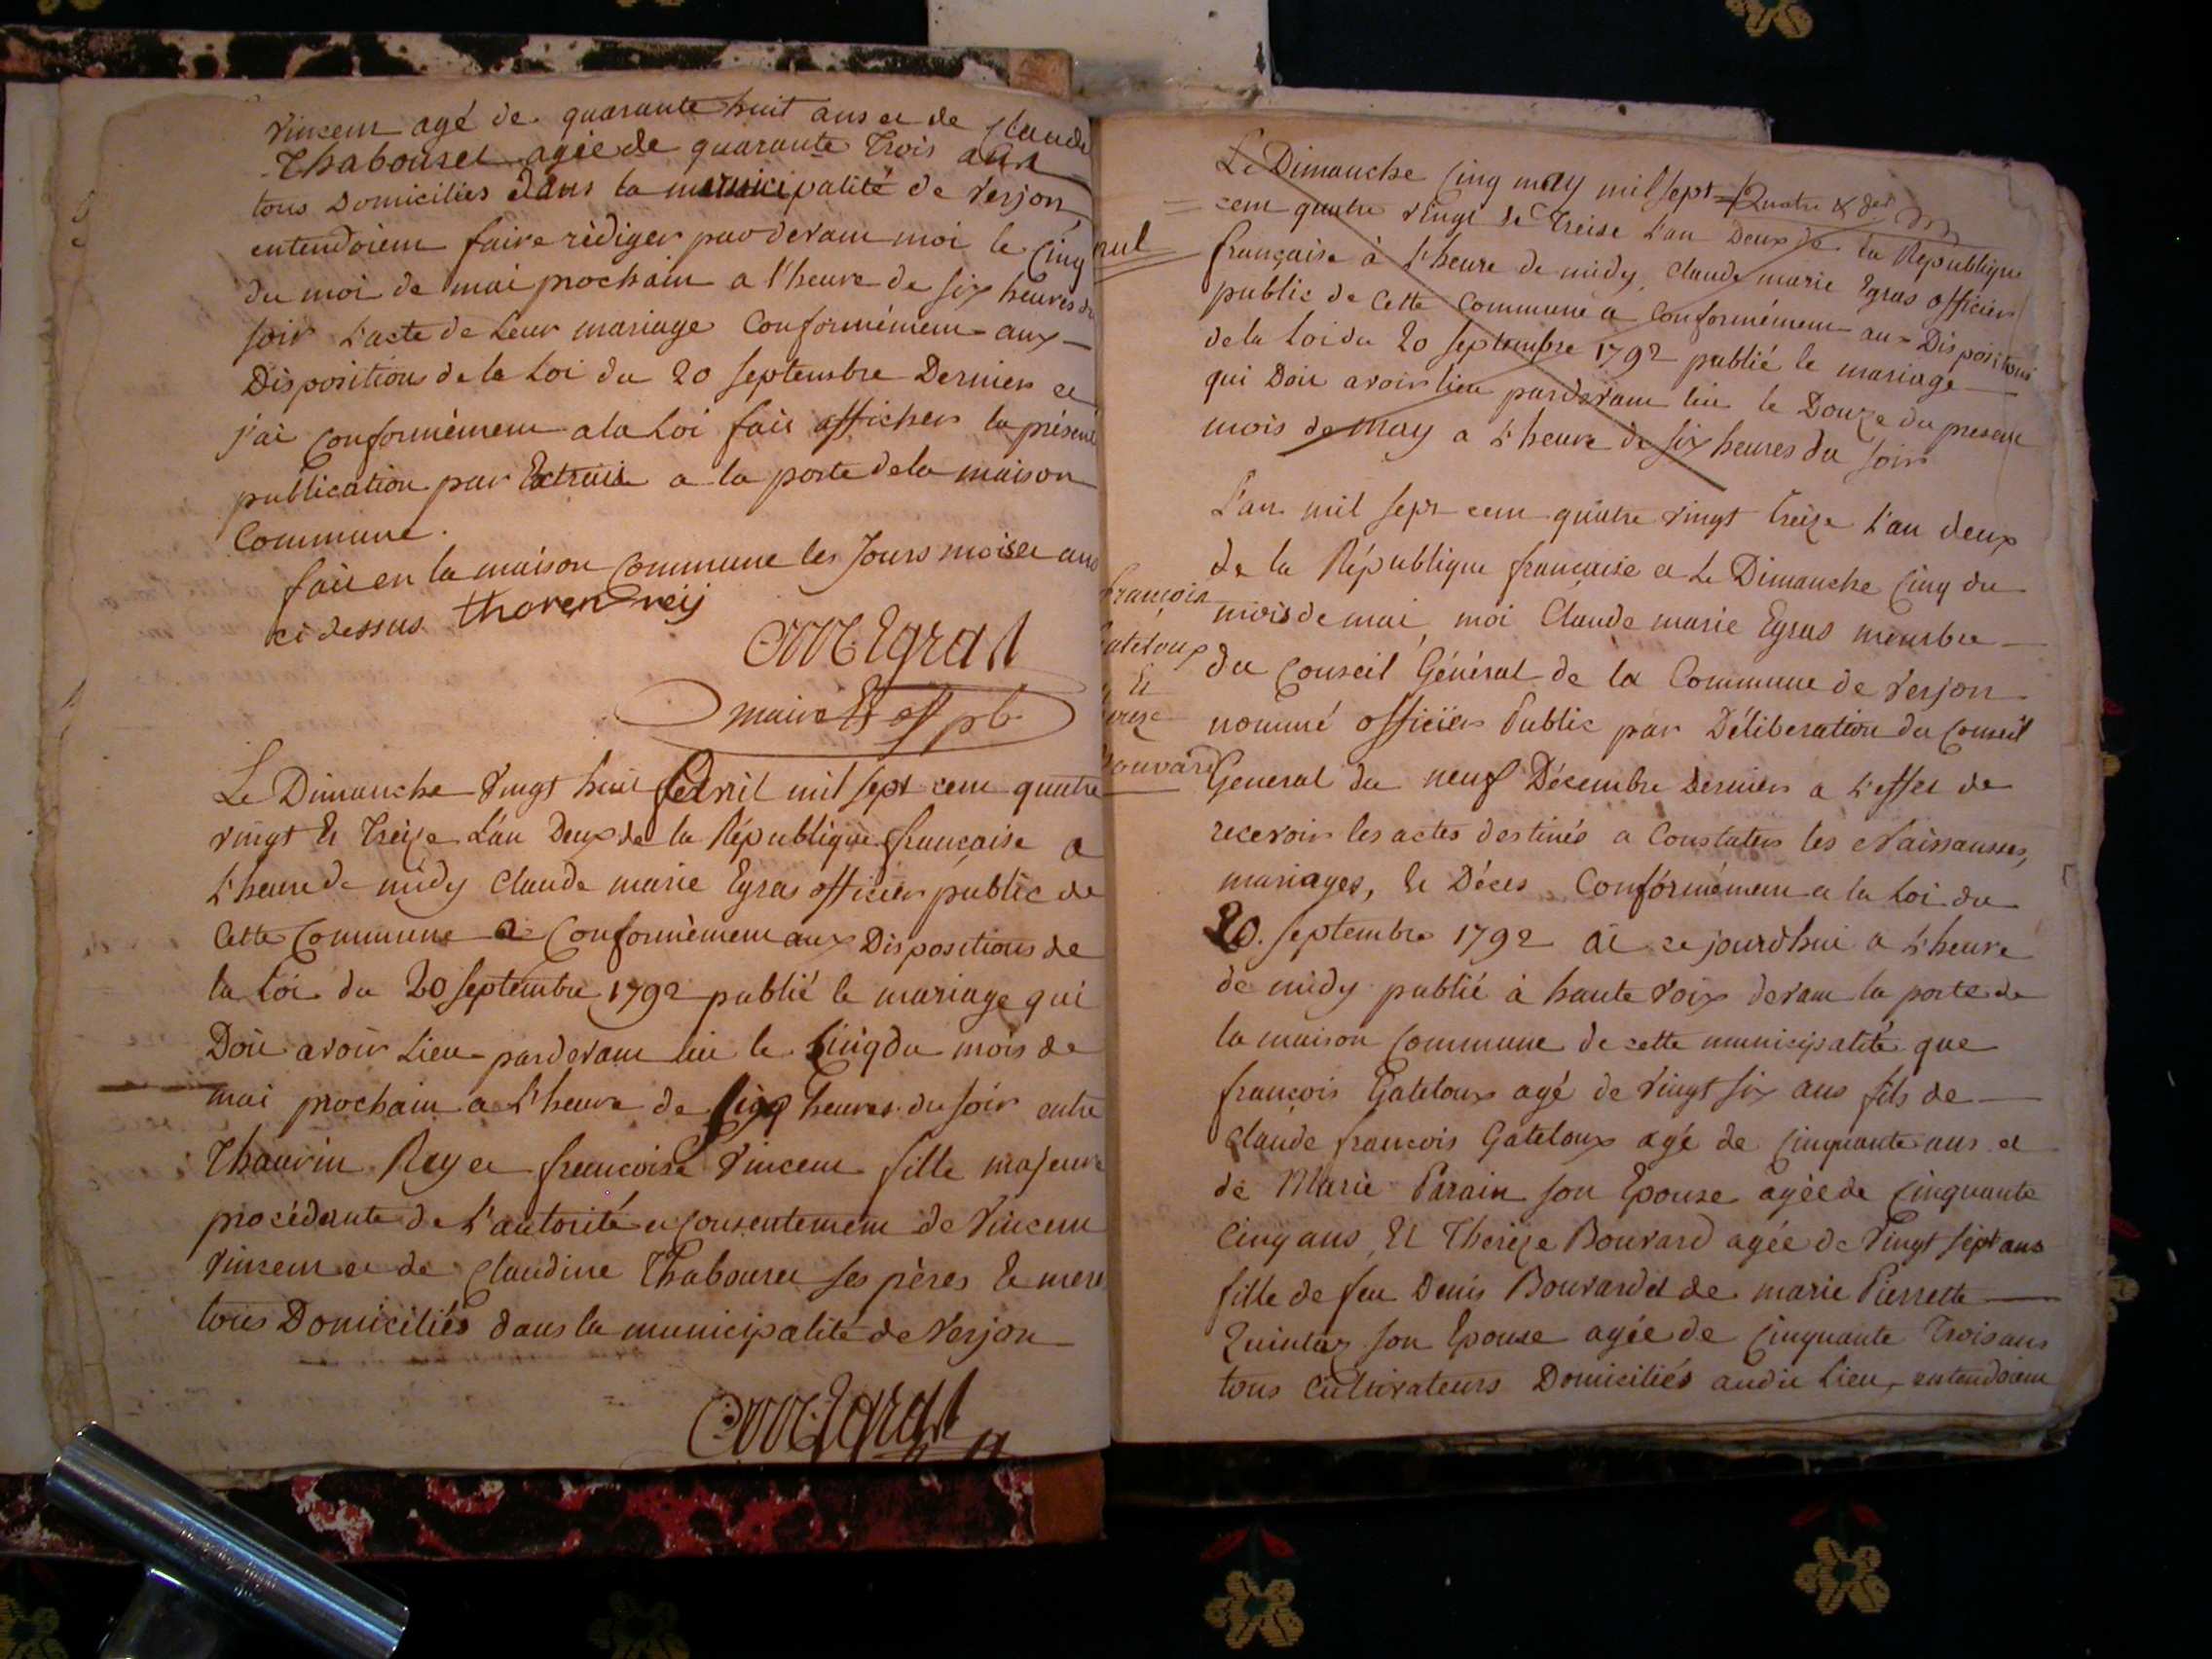 Vincent agé de quarante huit ans et de Claude
Thabouret agée de quarante trois ans
tous Domiciliés dans la municipalité de Verjon
entendoient faire rédiger pardevant moi le cinq
du moi de mai prochain a l'heure de six heures du
soir l'acte de Leur mariage Conformément aux
Dispositions de la Loi du 20 septembre Dernier et
j'ai conformément a la Loi fait afficher la présente
publication par Extrait a la porte de la maison
Commune.
fait en la maison Commune les Jours mois et an
ci dessus thoren reij
CM Egras
maire & off pb
Le Dimanche vingt huit avril mil sept cent quatre
vingt & treize L'an Deux de la République française a
L'heure de midy Claude marie Egras officier public de
Cette Commune a Conformément aux Dispositions de
la Loi du 20 septembre 1792 publié le mariage qui
Doit avoir Lieu pardevant lui le cinq du mois de
mai prochain a L'heure de heures du soir entre
Thaurin Rey et francoise Vincent fille majeure
procédante de L'autorité et consentement de Vincent
Vincent et de Claudine Thabouret ses pères & mere
tous Domiciliés dans la municipalité de Verjon
CM Egras
Le Dimanche Cinq may mil sept
cent quatre vingt & treise L'an Deux de la République
nul
française à L'heure de midy, Claude marie Egras officier
public de Cette Commune a Conformément aux Dispositions
de la Loi du 20 septembre 1792 publié le mariage
qui Doit avoir lieu pardevant lui le Douze du present
mois de May a L'heure de six heures du soir
L'an mil sept cent quatre vingt treize L'an deux
de la République française et Le Dimanche Cinq du
mois de mai, moi Claude marie Egras membre
françois
gateloux
&
Bouvard
du Conseil Général de la Commune de Verjon
nommé officier Public par Déliberation du Conseil
General du neuf Décembre Dernier a L'effet de
recevoir les actes destinés a Constater les Naissansses,
mariages, & Déces Conformément a la Loi du
20. septembre 1792 ai ce jourdhui a L'heure
de midy publié à haute voix devant la porte de
la maison Commune de cette municipalité que
françois Gateloux agé de Vingt six ans fils de
Claude francois Gateloux agé de Cinquante ans et
de Marie Parain son Epouse agée de Cinquante
Cinq ans, Et Therèze Bouvard agée de Vingt sept ans
fille de feu Denis Bouvard et de marie Pierrette
Quintas son Epouse agée de Cinquante Trois ans
tous Cultivateurs Domiciliés audit Lieu, entendoient